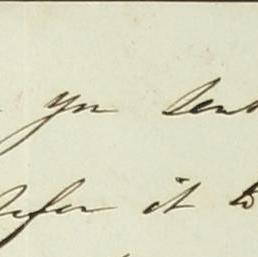 you sent
refer it to